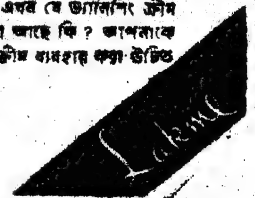 এখন যে ভ্যানিশিং ক্রীম
আছে কি? আপনাকে
ক্রীম ব্যবহার করা উচিত
Lakmé